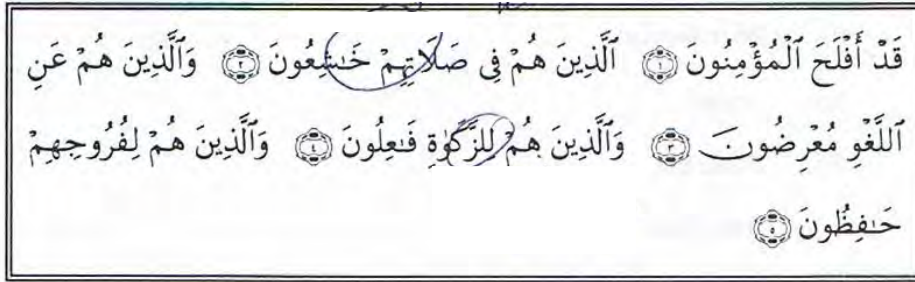 قَدْ أَفْلَحَ ٱلْمُؤْمِنُونَ ۝١ ٱلَّذِينَ هُمْ فِى صَلَاتِهِمْ خَـٰشِعُونَ ۝٢ وَٱلَّذِينَ هُمْ عَنِ
ٱللَّغْوِ مُعْرِضُونَ ۝٣ وَٱلَّذِينَ هُمْ لِلزَّكَوٰةِ فَـٰعِلُونَ ۝٤ وَٱلَّذِينَ هُمْ لِفُرُوجِهِمْ
حَـٰفِظُونَ ۝٥